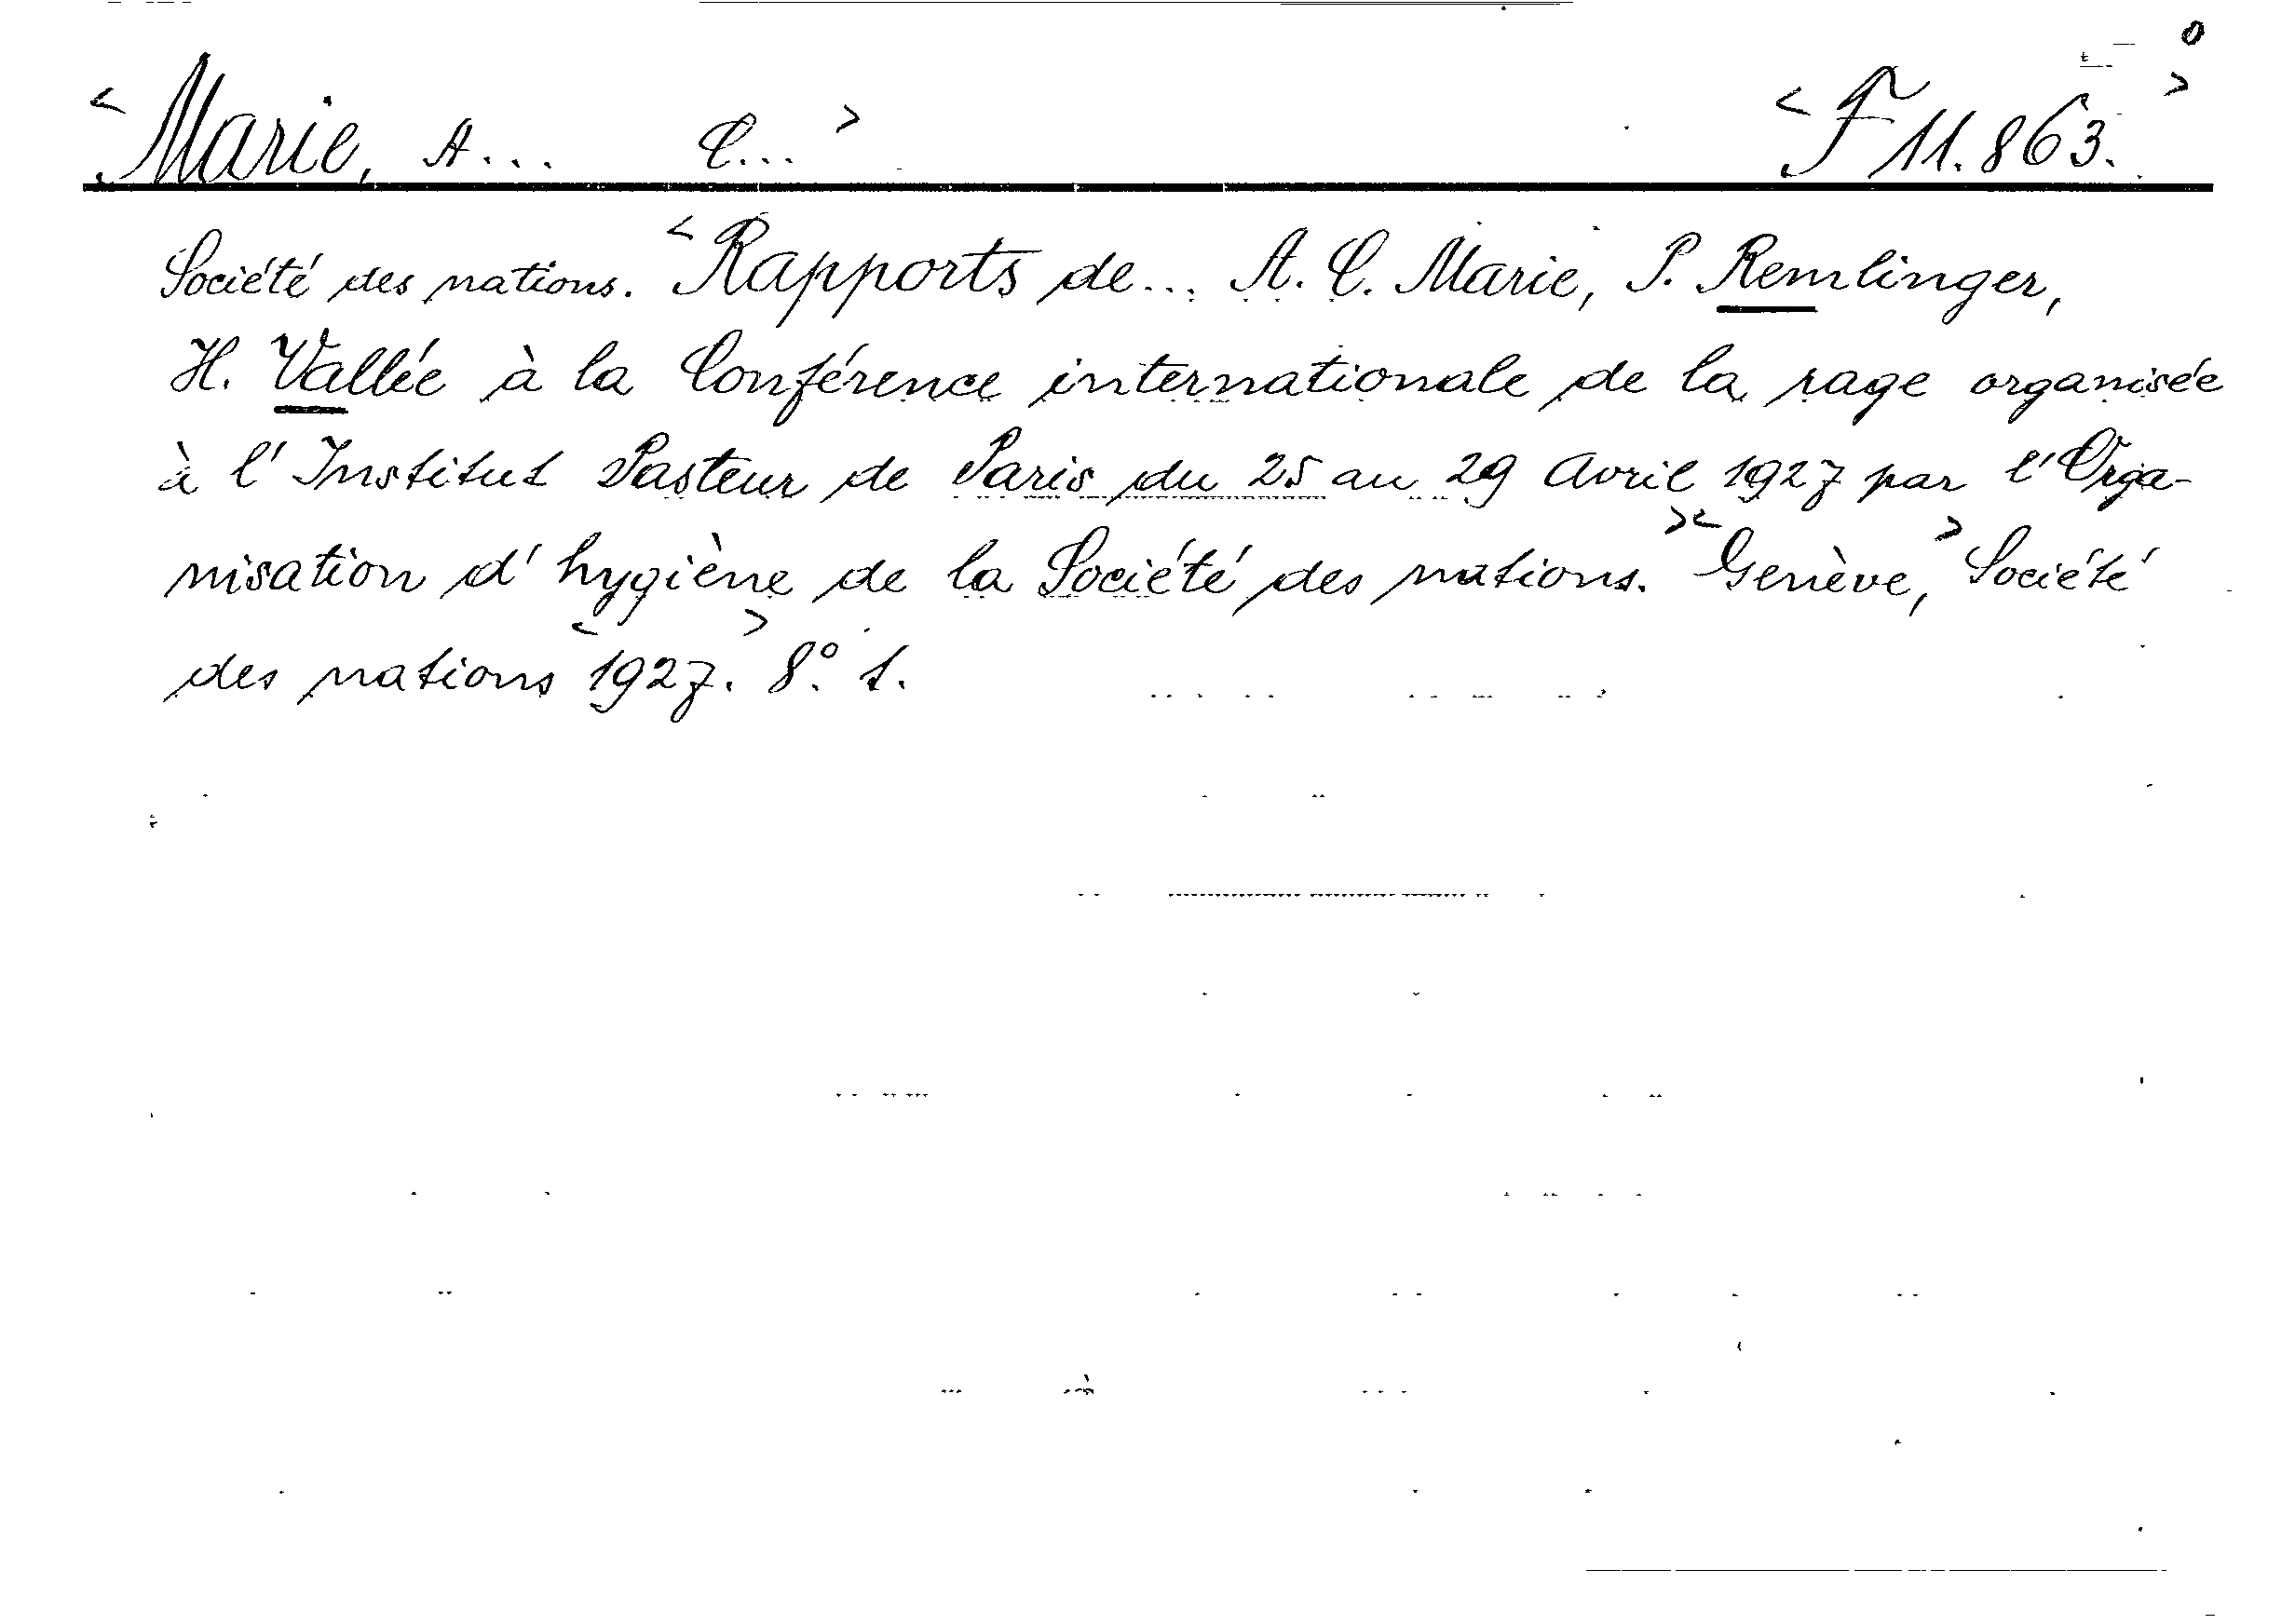 <Marie, A... C...> <F 11.863.>
Société des nations. <Rapports de... A. C. Marie, P. Remlinger,
H. Vallée à la Conférence internationale de la rage organisée
à l'Institut Pasteur de Paris du 25 au 29 Avril 1927 par l'Orga-
nisation d'hygiène de la Société des nations.> <Genève,> Société
des nations <1927.> 8°. 1.